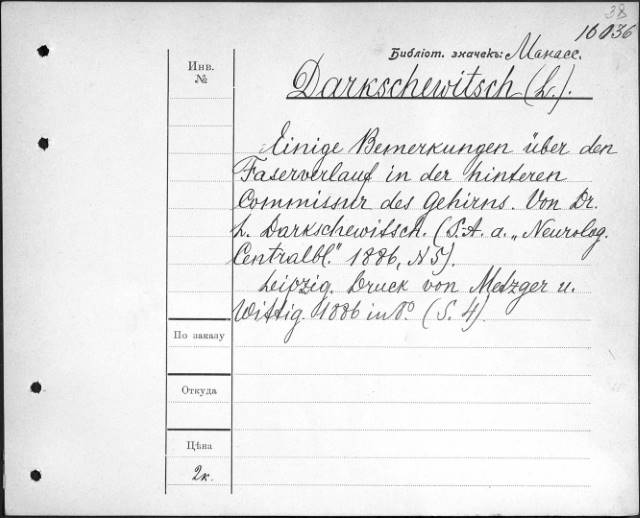 38
16036
Библіот. значекъ: Манасс.
Инв.
№
Darkschewitsch (L.).
Einige Bemerkungen über den
Faserverlauf in der hinteren
Commissur des Gehirns. Von Dr.
L. Darkschewitsch. (S.A. a. „Neurolog.
Centralbl." 1886, N5).
Leipzig. Druck von Metzger u.
Wittig. 1886 in 8°. (S. 4).
По заказу
Откуда
Цѣна
2к.